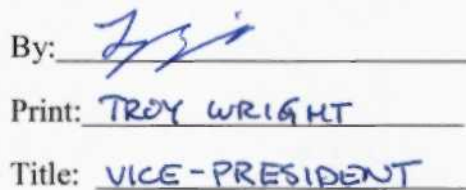 By:
Print: TROY WRIGHT
Title: VICE-PRESIDENT